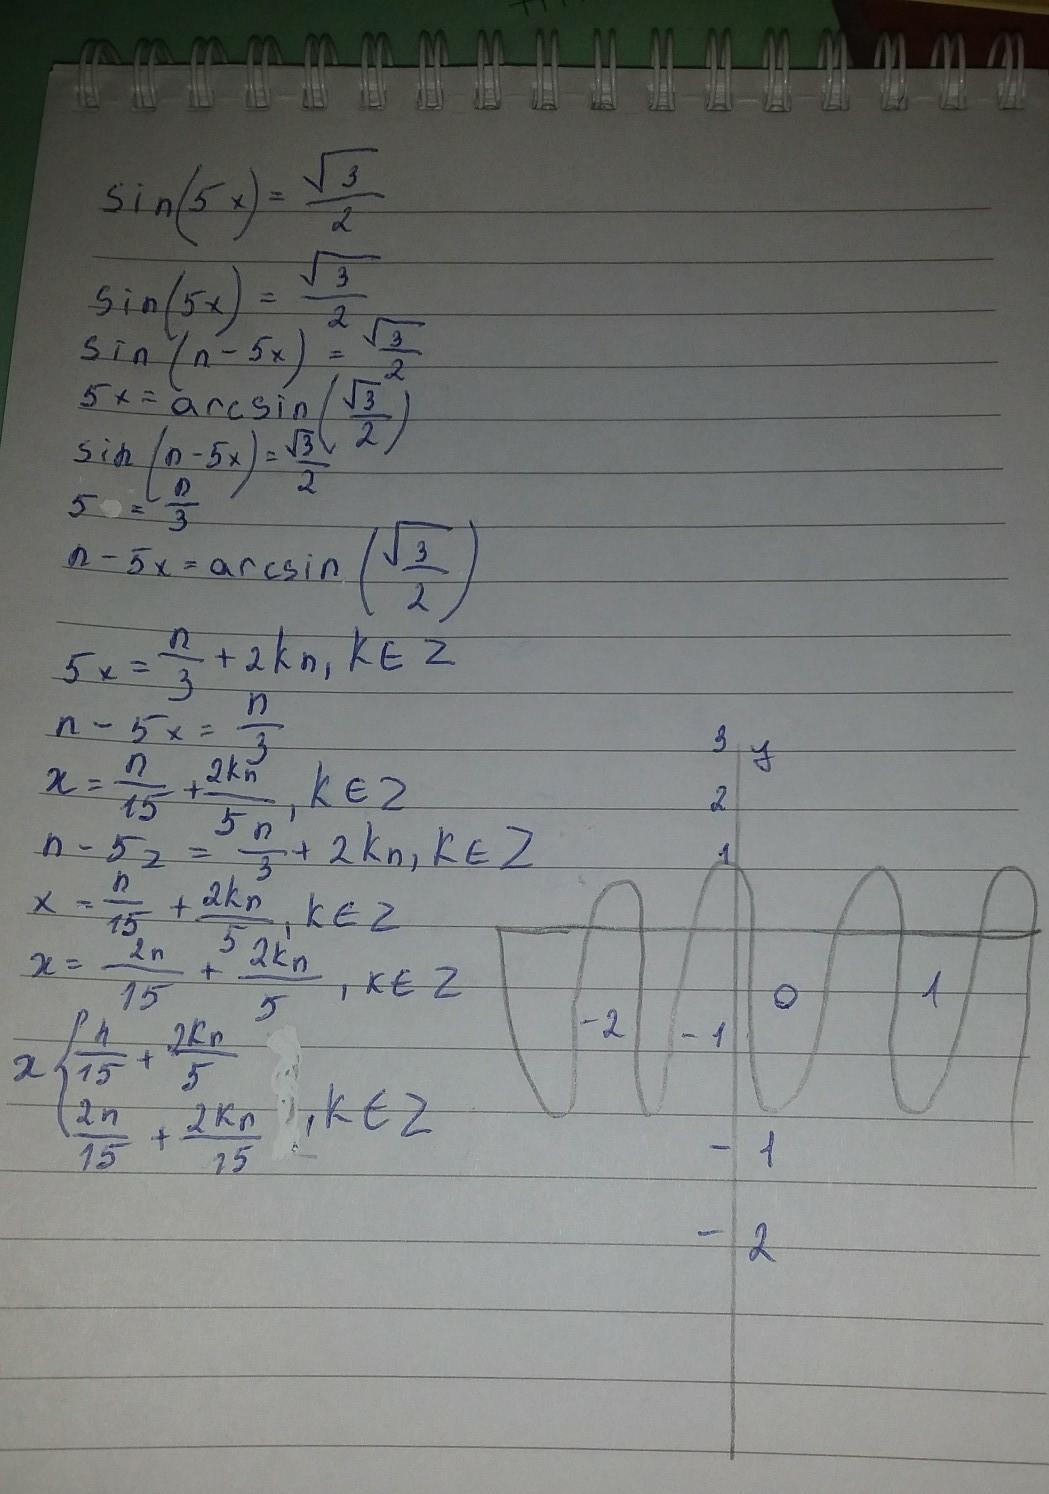 sin(5x) = √3/2
sin(5x) = √3/2
sin(n - 5x) = √3/2
5x = arcsin(√3/2)
sin(n - 5x) = √3/2
5 = n/3
n - 5x = arcsin(√3/2)
5x = n/3 + 2kn, k ∈ Z
n - 5x = n/3
x = n/15 + 2kn/5, k ∈ Z
n - 5z = n/3 + 2kn, k ∈ Z
x = n/15 + 2kn/5, k ∈ Z
x = 2n/15 + 2kn/5, k ∈ Z
x { n/15 + 2kn/5
2n/15 + 2kn/15 , k ∈ Z
3 y
2
1
-2 -1 0 1
-1
-2